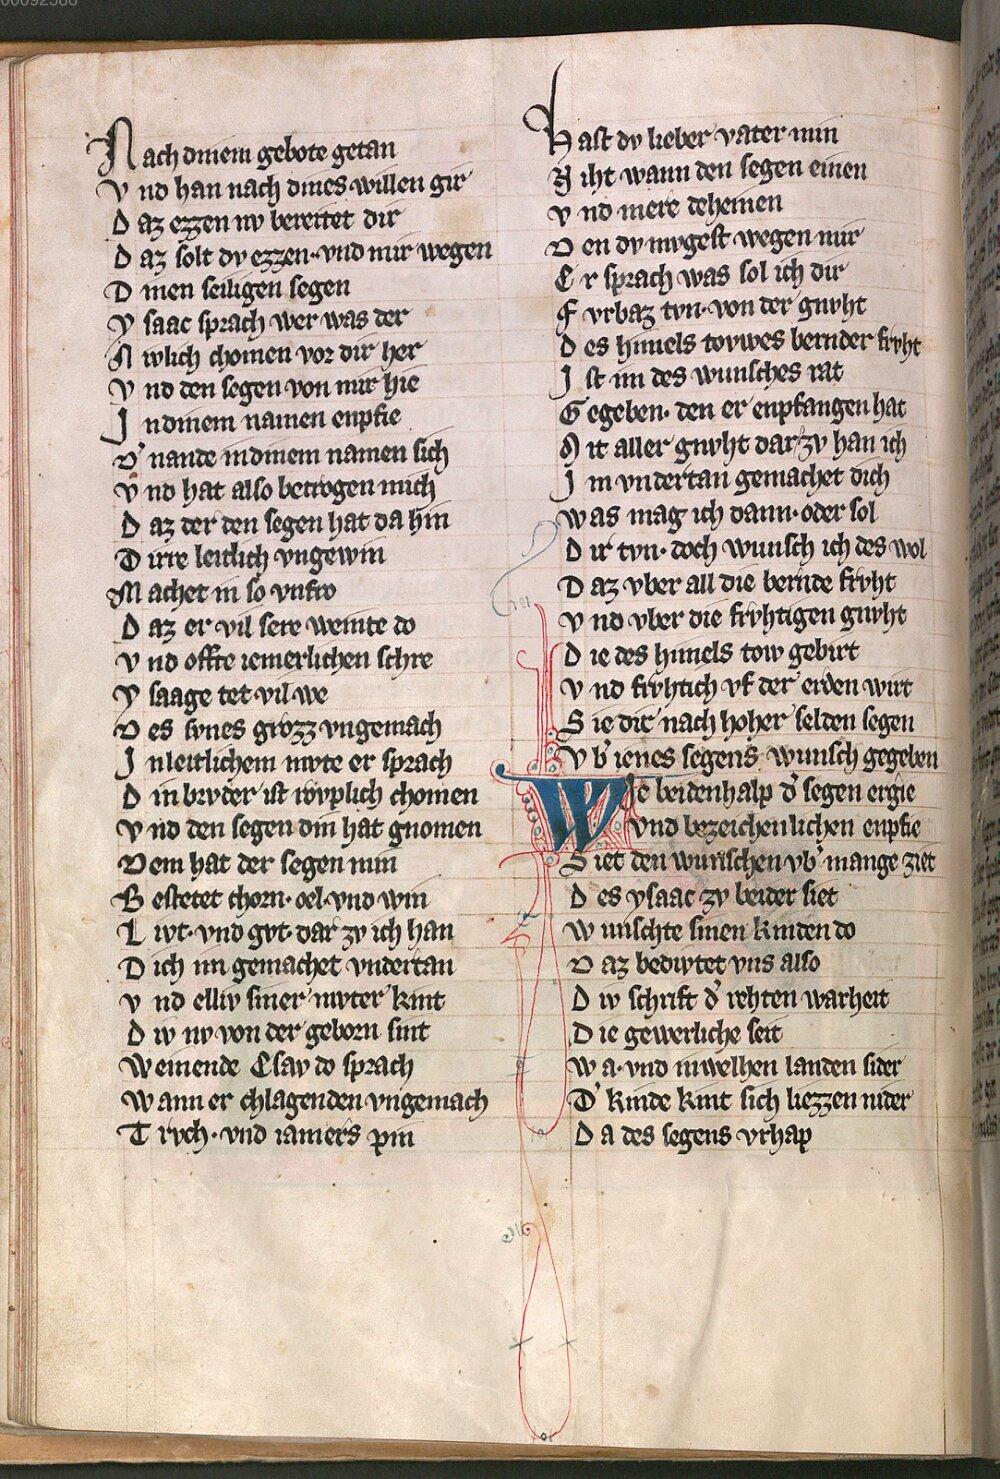 00092588
Nach dinem gebote getan
Vnd han nach dines willen gir
Daz ezzen nv bereitet dir
Daz solt dv ezzen·vnd mir wegen
Dinen seiligen segen
Ysaac sprach wer was der
Niwlich chomen vor dir her
Vnd den segen von mir hie
Indinem namen enpfie
D' nande indinem namen sich
Vnd hat also betrogen mich
Daz der den segen hat da hin
Dirre leitlich vngewin
Machet in so vnfro
Daz er vil sere weinte do
Vnd offte iemerlichen schre
Ysaage tet vil we
Des svnes grozz vngemach
Inleitlichem mvte er sprach
Din brvder ist wiplich chomen
Vnd den segen din hat gnomen
Dem hat der segen min
Bestetet chorn·oel·vnd win
Livt·vnd gvt·dar zv ich han
Dich im gemachet vndertan
Vnd elliv siner mvter kint
Div nv von der geborn sint
Weinende Esav do sprach
Wann er chlagenden vngemach
Trvch·vnd iamers pin
Hast dv lieber vater min
Niht wann den segen einen
Vnd mere deheinen
Den dv mvgest wegen mir
Er sprach was sol ich dir
Fvrbaz tvn·von der gnvht
Des himels tovwes bernder frvht
Ist im des wunsches rat
Gegeben·den er enpfangen hat
Mit aller gnvht dar zv han ich
Im vndertan gemachet dich
Was mag ich dann·oder sol
Dir tvn·doch wunsch ich des wol
Daz vber all die bernde frvht
Vnd vber die frvhtigen gnvht
Die des himels tow gebirt
Vnd frvhtich vf der erden wirt
Sie dir nach hoher selden segen
Vb' ienes segens wunsch gegeben
Wie beidenhalp d' segen ergie
Vnd bezeichenlichen enpfie
Siet den wunschen vb' mange ziet
Des ysaac zv beider siet
Wunschte sinen kinden do
Daz bedivtet vns also
Div schrift d' rehten warheit
Die gewerliche seit
Wa·vnd inwelhen landen sider
D' kinde kint sich liezzen nider
Da des segens vrhap